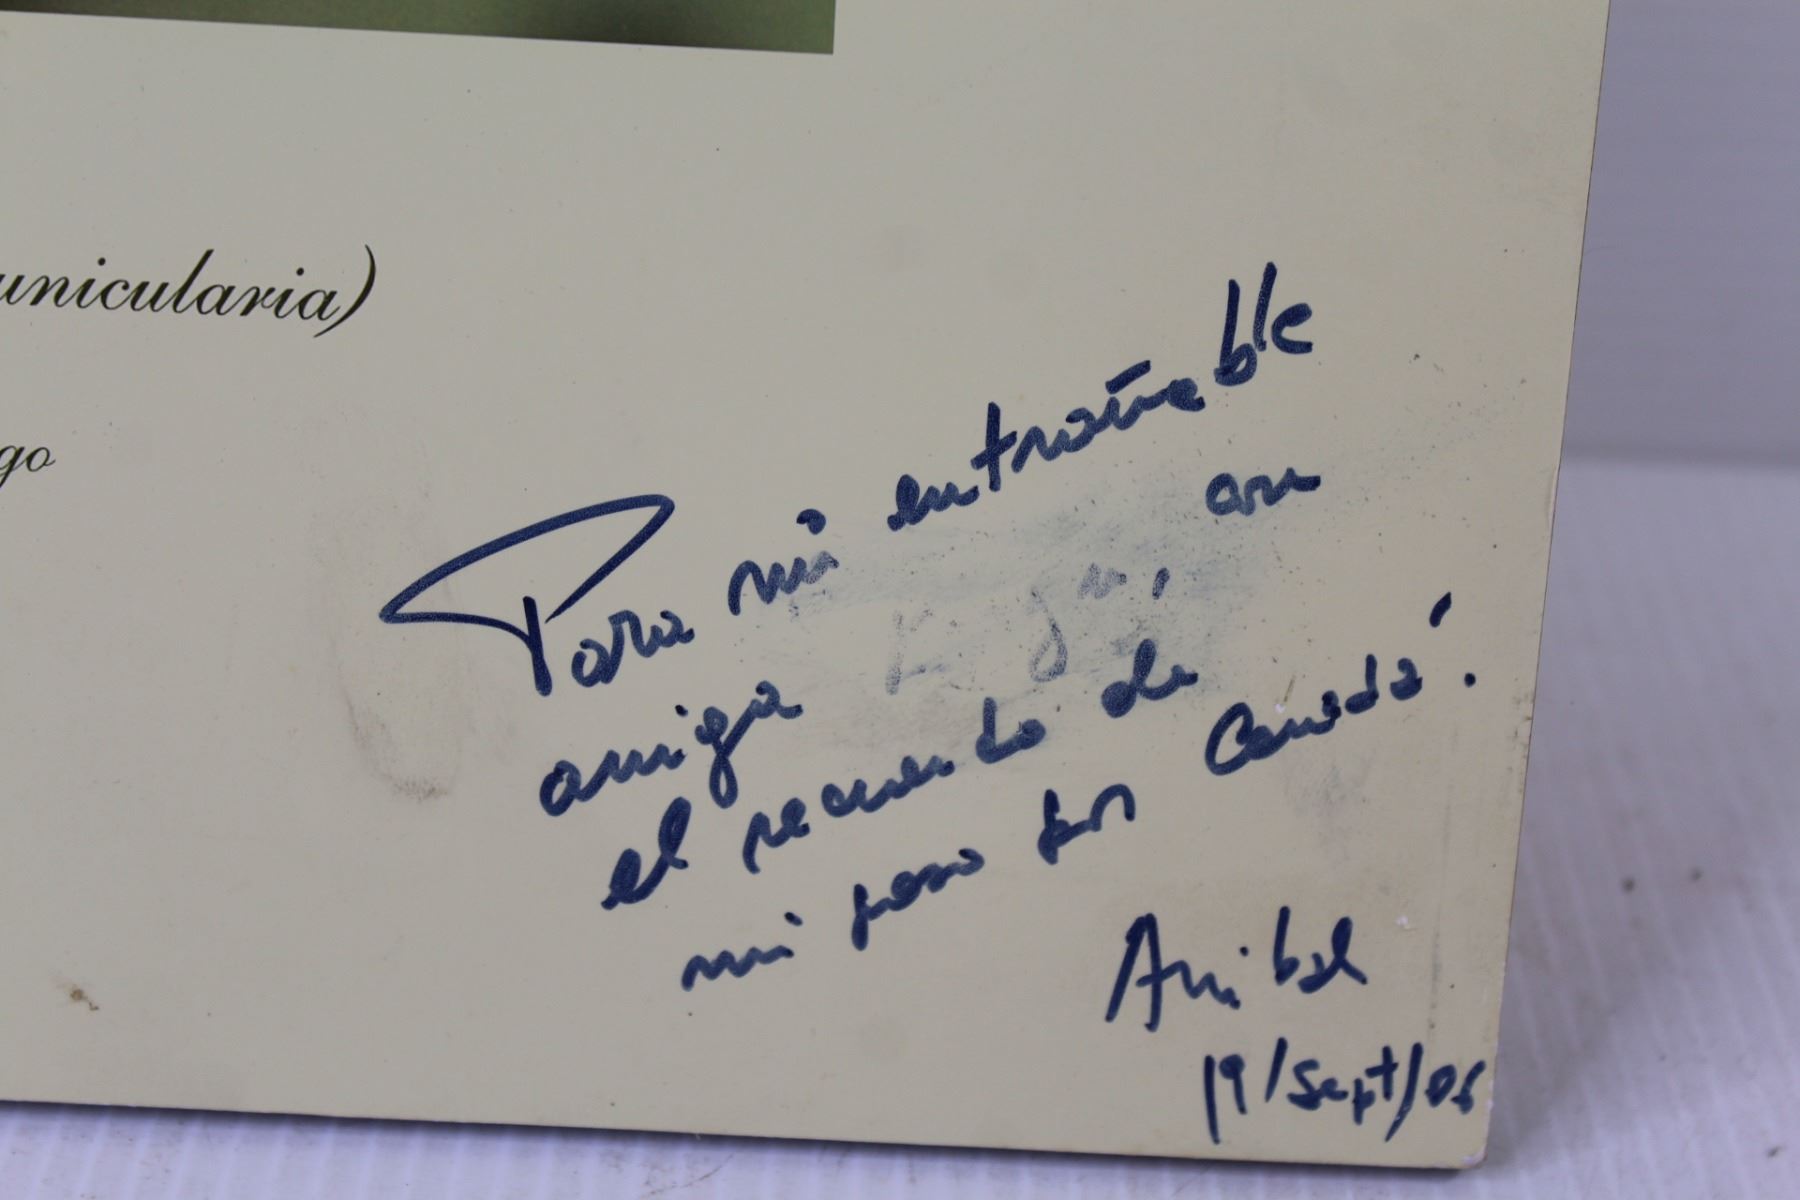 unicularia)
go
Para mi entrañable
amiga , con
el recuerdo de
mi paso por Canadá.
Anibal
19/Sept/06